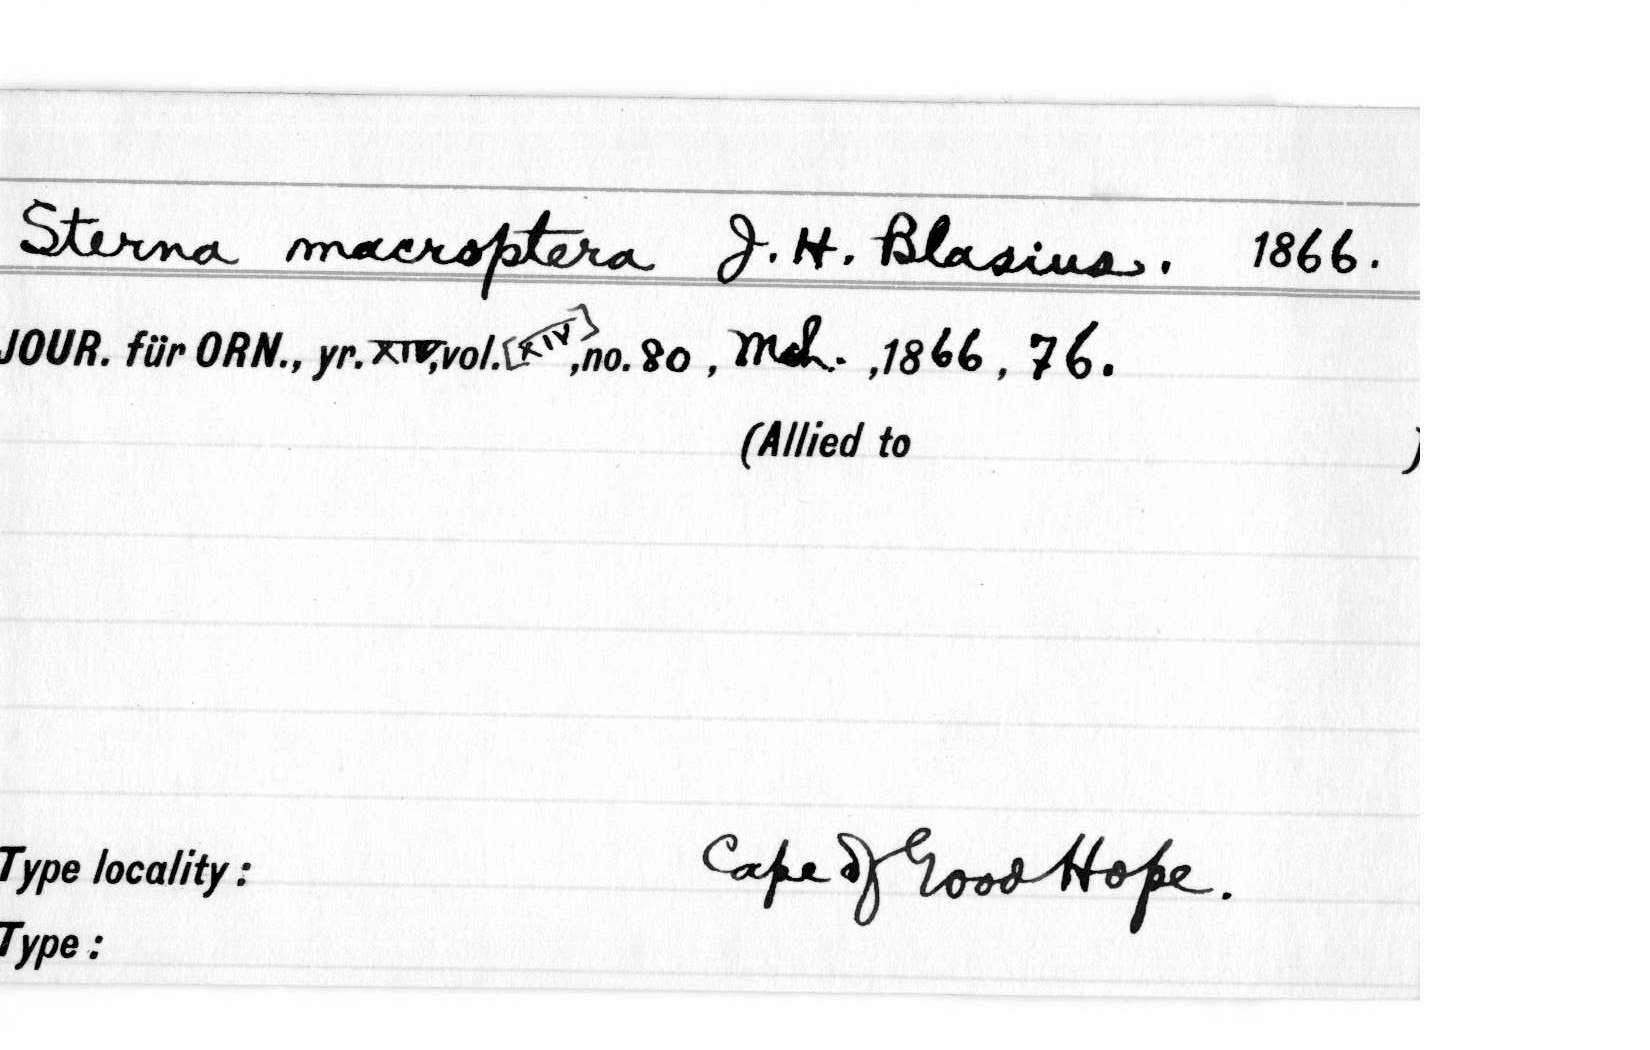 Sterna macroptera J. H. Blasius. 1866.
JOUR. für ORN., yr. XIV, vol. [XIV], no. 80, Mch. ,1866, 76.
(Allied to )
Type locality: Cape of Good Hope.
Type: